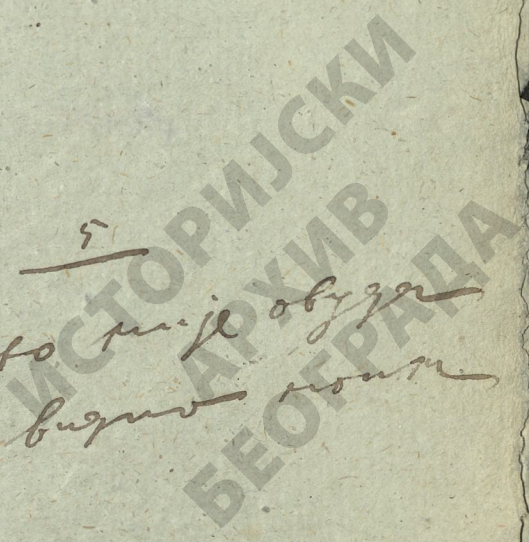 ИСТОРИЈСКИ
АРХИВ
БЕОГРАДА
5
није овуда
видно